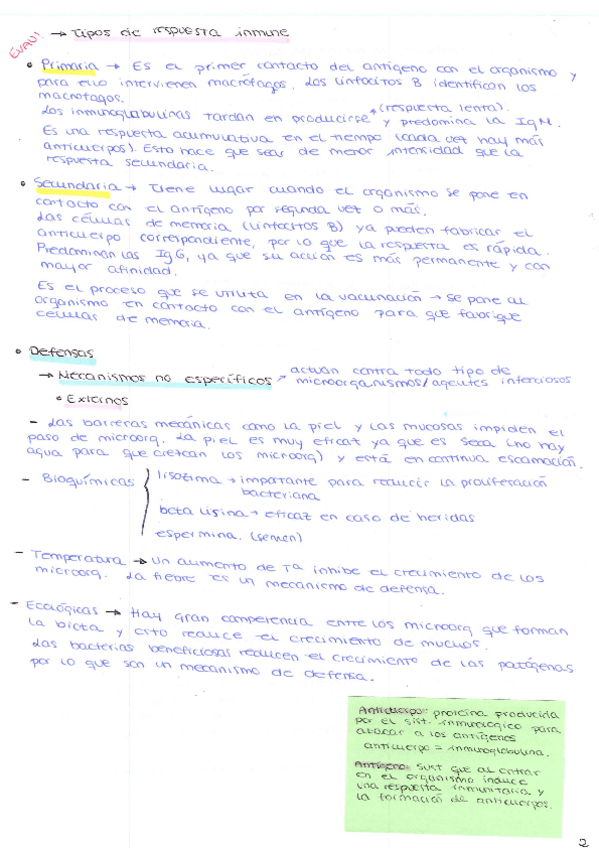 EVAU! → Tipos de respuesta inmune
• Primaria → Es el primer contacto del antígeno con el organismo y
para ello intervienen macrófagos. Los linfocitos B identifican los
macrófagos.
Los inmunoglobulinas tardan en producirse (respuesta lenta) y predomina la IgM.
Es una respuesta acumulativa en el tiempo (cada vez hay más
anticuerpos). Esto hace que sea de menor intensidad que la
respuesta secundaria.
• Secundaria → Tiene lugar cuando el organismo se pone en
contacto con el antígeno por segunda vez o más.
Las células de memoria (linfocitos B) ya pueden fabricar el
anticuerpo correspondiente, por lo que la respuesta es rápida.
Predominan las IgG, ya que su acción es más permanente y con
mayor afinidad.
Es el proceso que se utiliza en la vacunación → se pone al
organismo en contacto con el antígeno para que fabrique
células de memoria.
• Defensas
→ Mecanismos no específicos → actúan contra todo tipo de
microorganismos/agentes infecciosos
• Externos
- Las barreras mecánicas como la piel y las mucosas impiden el
paso de microorg. La piel es muy eficaz ya que es seca (no hay
agua para que crezcan los microorg) y está en continua escamación.
- Bioquímicas
lisozima → importante para reducir la proliferación
bacteriana
beta lisina → eficaz en caso de heridas
espermina. (semen)
- Temperatura → Un aumento de Tª inhibe el crecimiento de los
microorg. La fiebre es un mecanismo de defensa.
- Ecológicas → Hay gran competencia entre los microorg que forman
la biota y esto reduce el crecimiento de muchos.
Las bacterias beneficiosas reducen el crecimiento de las patógenas
por lo que son un mecanismo de defensa.
Anticuerpo: proteína producida
por el sist. inmunológico para
atacar a los antígenos
anticuerpo = inmunoglobulina.
Antígeno: sust que al entrar
en el organismo induce
una respuesta inmunitaria y
la formación de anticuerpos.
2